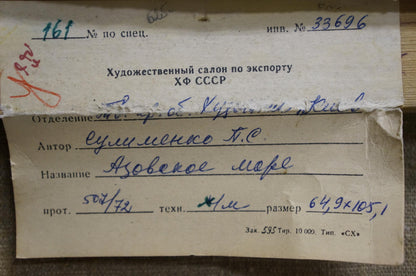 161 № по спец. инв. № 33696
Художественный салон по экспорту
ХФ СССР
Отделение
Автор Сулименко П.С.
Название Азовское море
прот. 507/72 техн. х/м размер 64,9×105,1
Зак. 595 Тир. 10 000. Тип. «СХ»